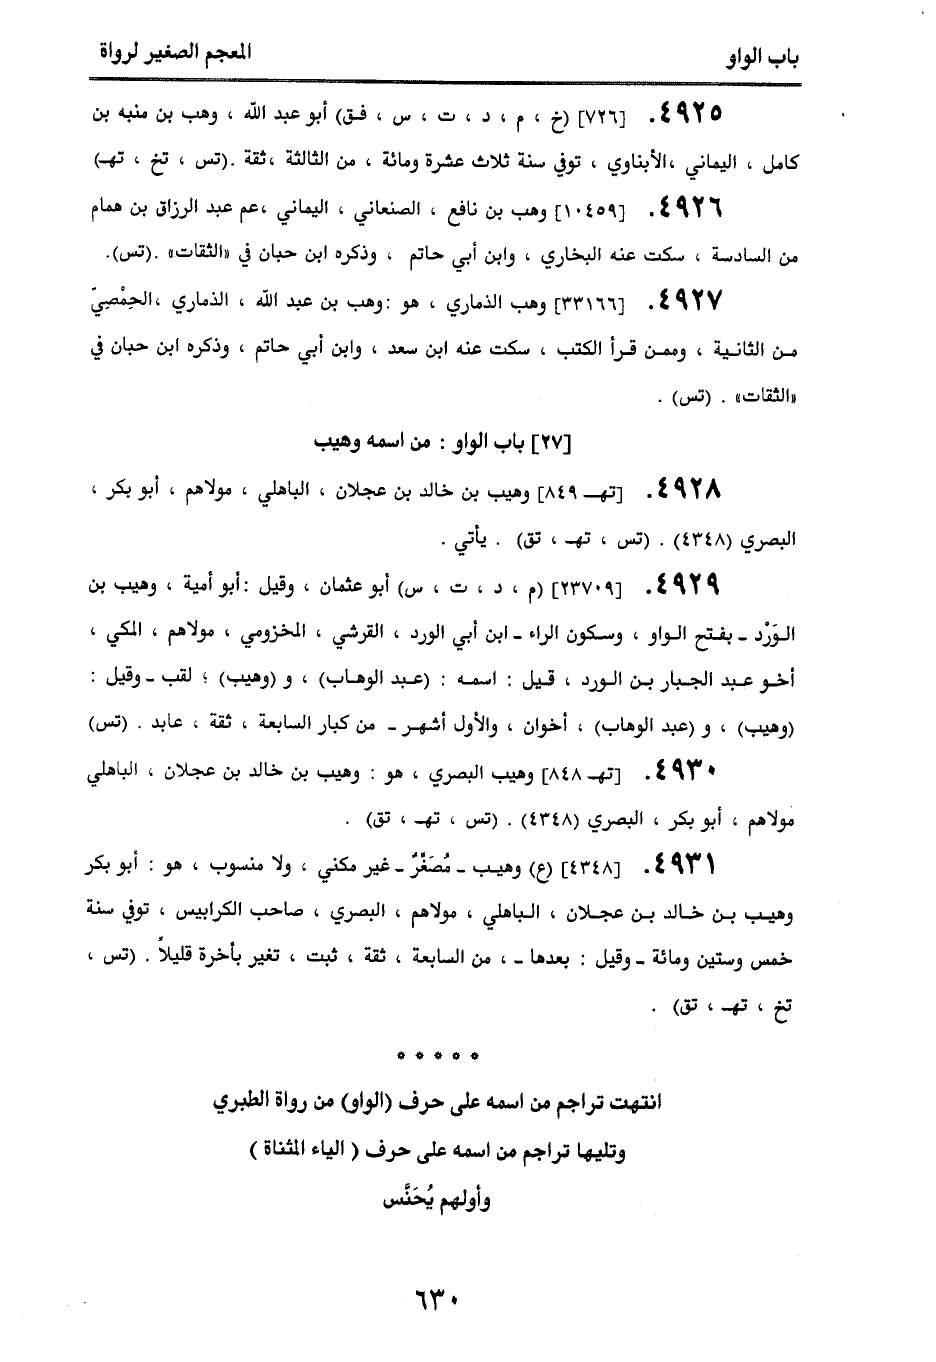 باب الواو المعجم الصغير لرواة
٤٩٢٥. [٧٢٦] (خ ، م ، د ، ت ، س ، فق) أبو عبد الله ، وهب بن منبه بن
كامل ، اليماني ،الأبناوي ، توفي سنة ثلاث عشرة ومائة ، من الثالثة ،ثقة .(تس ، تخ ، تهـ)
٤٩٢٦. [١٠٤٥٩] وهب بن نافع ، الصنعاني ، اليماني ،عم عبد الرزاق بن همام
من السادسة ، سكت عنه البخاري ، وابن أبي حاتم ، وذكره ابن حبان في «الثقات» .(تس).
٤٩٢٧. [٣٣١٦٦] وهب الذماري ، هو :وهب بن عبد الله ، الذماري ،الحِمْصِيّ
من الثانية ، وممن قرأ الكتب ، سكت عنه ابن سعد ، وابن أبي حاتم ، وذكره ابن حبان في
«الثقات» . (تس) .
[٢٧] باب الواو : من اسمه وهيب
٤٩٢٨. [تهـ ٨٤٩] وهيب بن خالد بن عجلان ، الباهلي ، مولاهم ، أبو بكر ،
البصري (٤٣٤٨) . (تس ، تهـ ، تق) . يأتي .
٤٩٢٩. [٢٣٧٠٩] (م ، د ، ت ، س) أبو عثمان ، وقيل :أبو أمية ، وهيب بن
الوَرْد ـ بفتح الواو ، وسكون الراء ـ ابن أبي الورد ، القرشي ، المخزومي ، مولاهم ، المكي ،
أخو عبد الجبار بن الورد ، قيل : اسمه : (عبد الوهاب) ، و (وهيب) ؛ لقب ـ وقيل :
(وهيب) ، و (عبد الوهاب) ، أخوان ، والأول أشهر ـ من كبار السابعة ، ثقة ، عابد . (تس)
٤٩٣٠. [تهـ ٨٤٨] وهيب البصري ، هو : وهيب بن خالد بن عجلان ، الباهلي
مولاهم ، أبو بكر ، البصري (٤٣٤٨) . (تس ، تهـ ، تق) .
٤٩٣١. [٤٣٤٨] (ع) وهيب ـ مُصَغَّرٌ ـ غير مكني ، ولا منسوب ، هو : أبو بكر
وهيب بن خالد بن عجلان ، الباهلي ، مولاهم ، البصري ، صاحب الكرابيس ، توفي سنة
خمس وستين ومائة ـ وقيل : بعدها ـ ، من السابعة ، ثقة ، ثبت ، تغير بأخرة قليلاً . (تس ،
تخ ، تهـ ، تق) .
* * * * *
انتهت تراجم من اسمه على حرف (الواو) من رواة الطبري
وتليها تراجم من اسمه على حرف ( الياء المثناة )
وأولهم يُحَنَّس
٦٣٠